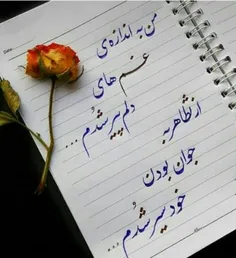 من به اندازه‌ی
غم های
دلم پیر شدم ...
از تظاهر به
جوان بودن
خود سیر شدم ...